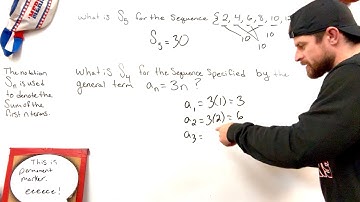 What is S₅ for the Sequence { 2, 4, 6, 8, 10, 12
10
10
S₅ = 30
The notation
Sₙ is used
to denote the
Sum of the
first n terms.
What is S₄ for the Sequence specified by the
general term aₙ = 3n ?
a₁ = 3(1) = 3
a₂ = 3(2) = 6
a₃ =
This is
permanent
marker.
eeeeee!